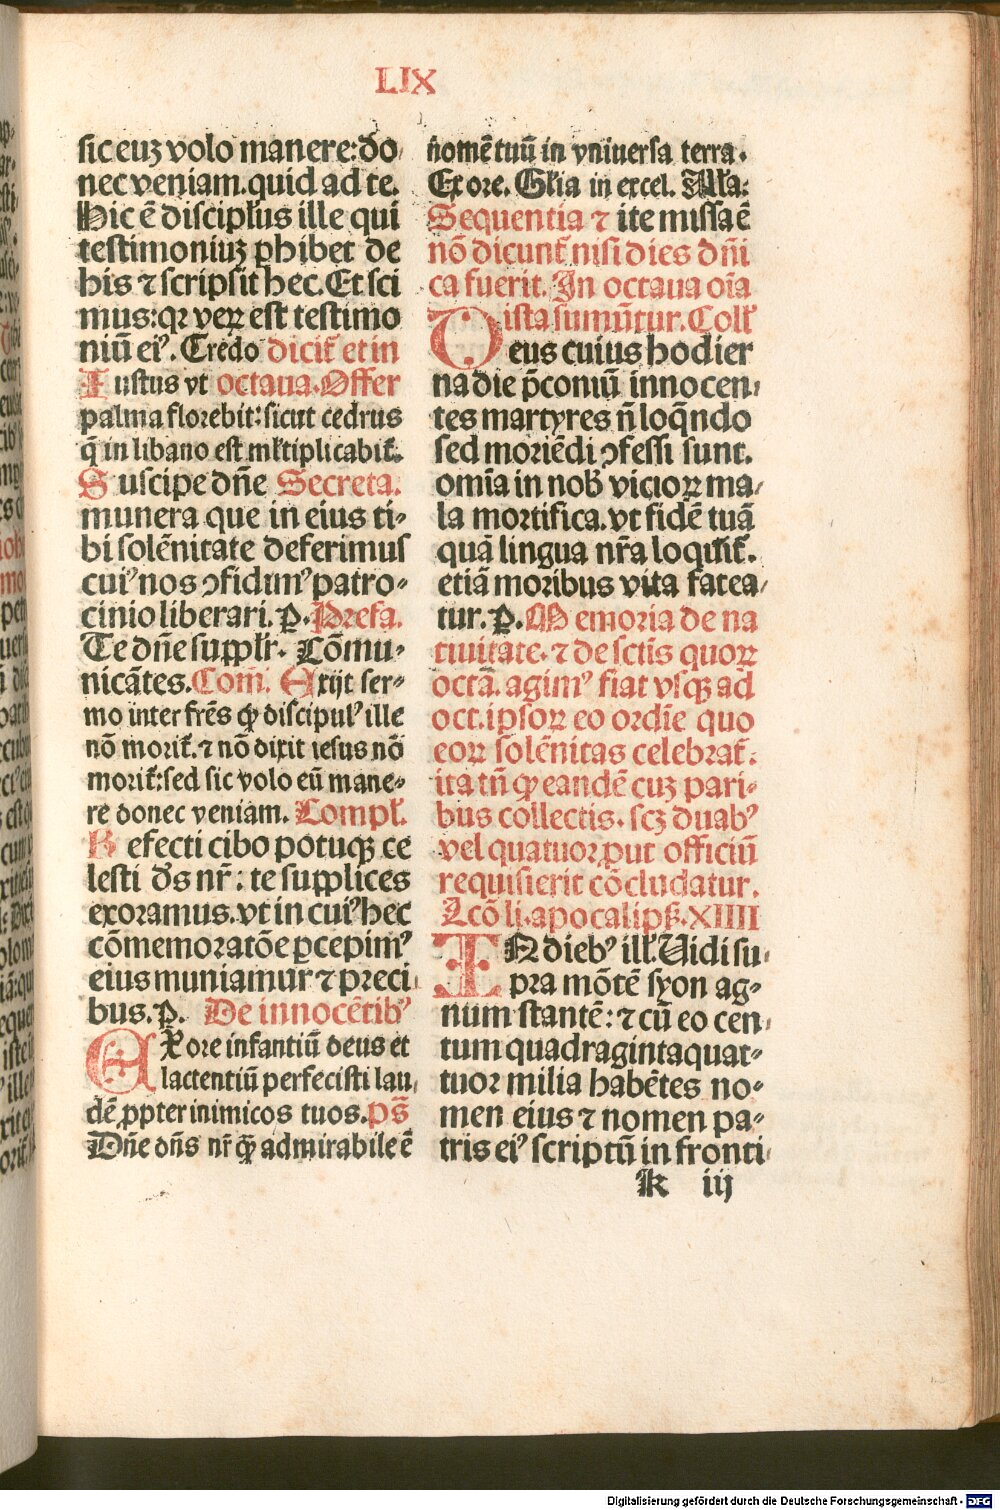 LIX
sic euʒ volo manere: do
nec veniam. quid ad te.
Hic ē discipl̄us ille qui
testimoniuʒ ꝑhibet de
his ⁊ scripsit hec. Et sci
mus: qꝛ veꝝ est testimo
niū eiꝰ. Credo dicit̄ et in
Iustus vt octaua. Offer
palma florebit: sicut cedrus
q̄ in libano est ml̄tiplicabit̄.
Suscipe dn̄e Secreta.
munera que in eius ti-
bi solēnitate deferimus
cuiꝰ nos ↄfidimꝰ patro-
cinio liberari. p. Prefa.
Te dn̄e supplr̄. Cōmu-
nicātes. Com̄. Exijt ser-
mo inter fr̄es ꝙ discipulꝰ ille
nō morit̄. ⁊ nō dixit iesus nō
morit̄: sed sic volo eū mane-
re donec veniam. Compl̄.
Refecti cibo potuqꝫ ce
lesti ds̄ nr̄: te supplices
exoramus. vt in cuiꝰ hec
cōmemoratōe ꝑcepimꝰ
eius muniamur ⁊ preci
bus. p. De innocētibꝰ
EX ore infantiū deus et
lactentiū perfecisti lau
dē ꝓpter inimicos tuos. ps̄
Dn̄e dn̄s nr̄ ꝙ̄ admirabile ē
n̄omē tuū in vniuersa terra.
Ex ore. Gl̄ia in excel. All̄a:
Sequentia ⁊ ite missa ē
nō dicunt̄ nisi dies dn̄i
ca fuerit. In octaua oīa
ista sumūtur. Coll̄
Deus cuius hodier
na die p̄coniū innocen
tes martyres n̄ loq̄ndo
sed moriēdi ↄfessi sunt.
omīa in nob̄ vicioꝝ ma
la mortifica. vt fidē tuā
quā lingua nr̄a loquit̄.
etiā moribus vita fatea
tur. p. Memoria de na
tiuitate. ⁊ de sctīs quoꝝ
octā. agimꝰ fiat vsqꝫ ad
oct. ipsoꝝ eo ordīe quo
eoꝝ solēnitas celebrat̄:
ita tn̄ ꝙ eandē cuʒ pari-
bus collectis. scʒ duabꝰ
vel quatuor ꝓut officiū
requisierit cōcludatur.
Lcō li. apocalipß. XIIII
IN diebꝰ ill̄. Vidi su
pra mōtē syon ag-
num stantē: ⁊ cū eo cen
tum quadragintaquat-
tuor milia habētes no-
men eius ⁊ nomen pa-
tris eiꝰ scriptū in fronti
k iij
Digitalisierung gefördert durch die Deutsche Forschungsgemeinschaft - DFG